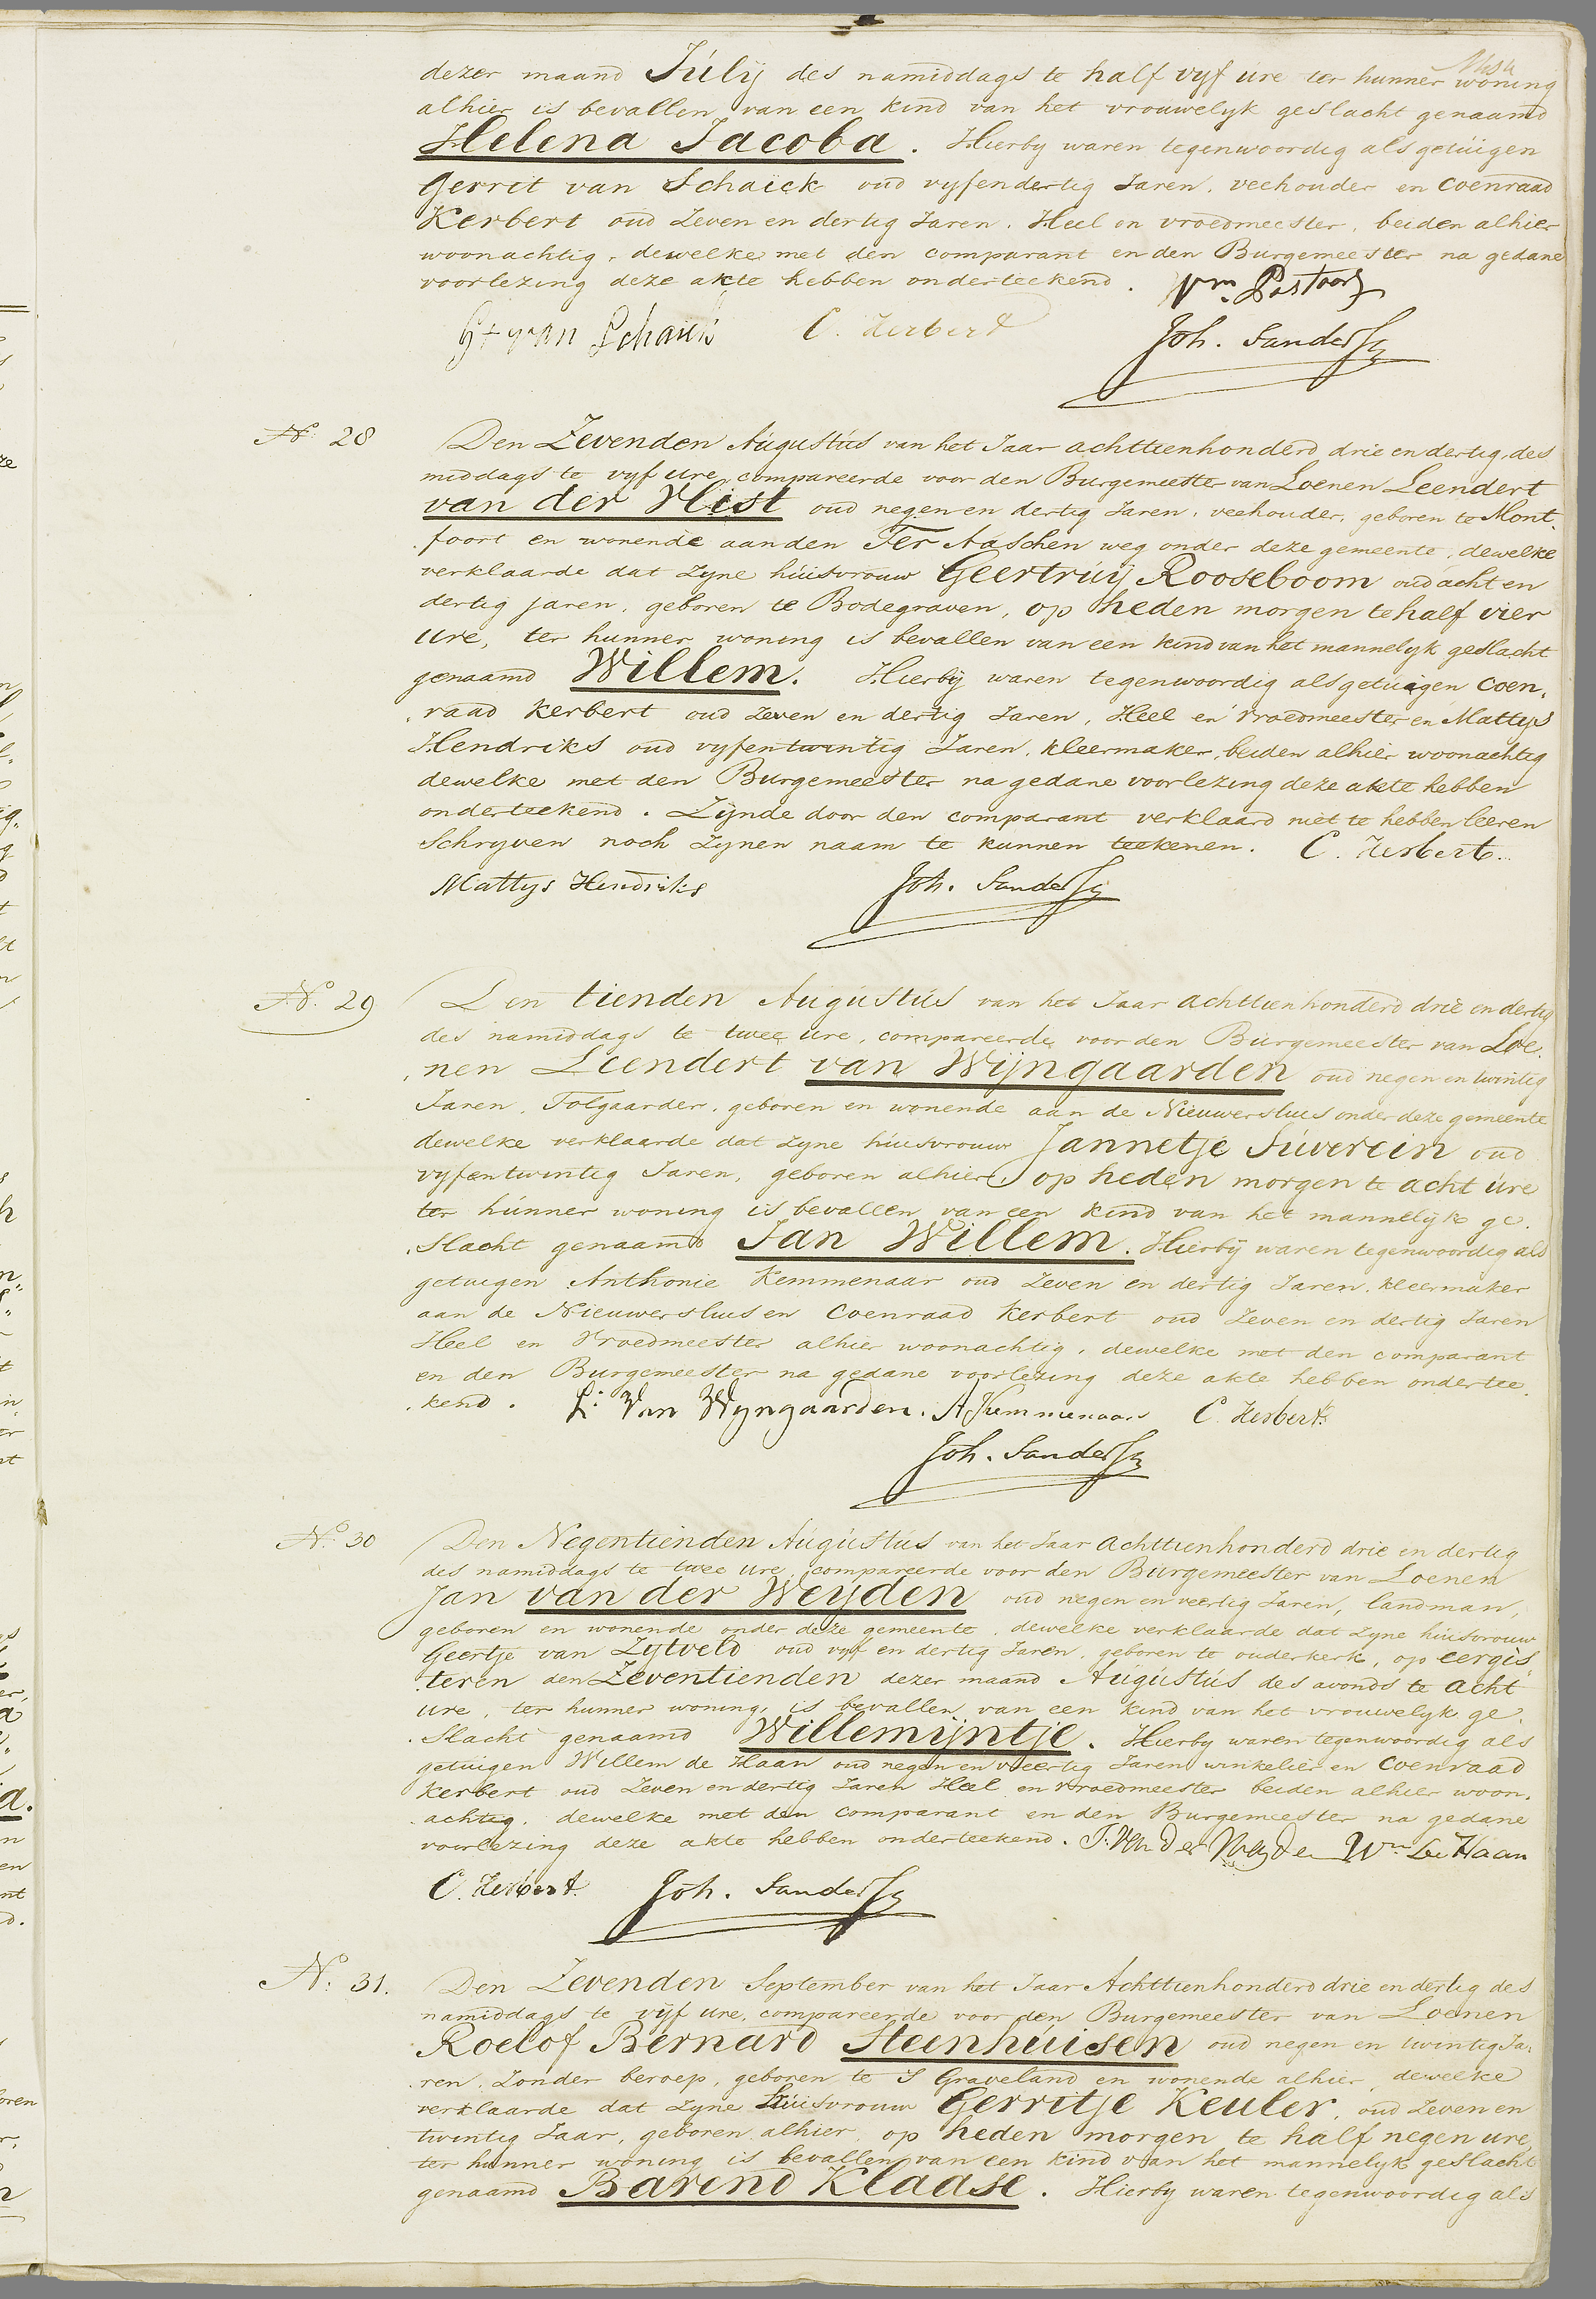 dezer maand Júlij des namiddags te half vyf úre ter hunner woning
alhier is bevallen van een kind van het vrouwelyk geslacht genaamd
Helena Jacoba. Hierby waren tegenwoordig als getúigen
Gerrit van Schaick oud vyfendertig Jaren, veehouder en Coenraad
Kerbert oud Zeven en dertig Jaren. Heel en vroedmeester, beiden alhier
woonachtig, dewelke met den comparant en den Burgemeester na gedane
voorlezing deze akte hebben onderteekend. Wm. Pastoor
Gt van Schaick C. Kerbert Joh. Sanders
No. 28
Den Zevenden Aúgústús van het Jaar achttienhonderd drie en dertig, des
middags te vyf ure, compareerde voor den Burgemeester van Loenen Leendert
van der Hist oud negen en dertig Jaren, veehouder, geboren te Mont,
,foort en wonende aan den Ter Aaschen weg onder deze gemeente, dewelke
verklaarde dat zyne húisvrouw Geertrúij Rooseboom oud acht en
dertig jaren, geboren te Bodegraven, op heden morgen te half vier
ure, ter hunner woning is bevallen van een kind van het mannelyk geslacht
genaamd Willem. Hierbij waren tegenwoordig als getuigen Coen,
,raad Kerbert oud zeven en dertig Jaren, Heel en vroedmeester en Mattys
Hendriks oud vyfentwintig Jaren, kleermaker, beiden alhier woonachtig
dewelke met den Burgemeester na gedane voorlezing deze akte hebben
onderteekend. Zijnde door den comparant verklaard niet te hebben leeren
Schryven noch zynen naam te kunnen teekenen. C. Kerbert.
Mattys Hendriks Joh. Sanders
No. 29
Den tienden Augústús van het Jaar achttienhonderd drie en dertig
des namiddags te twee ure, compareerde voor den Burgemeester van Loe,
,nen Leendert van Wijngaarden oud negen en twintig
Jaren, Tolgaarder, geboren en wonende aan de Nieuwersluis onder deze gemeente
dewelke verklaarde dat zyne húisvrouw Jannetje Súverein oud
vyfentwintig Jaren, geboren alhier, op heden morgen te acht úre
ter húnner woning is bevallen van een kind van het mannelijk ge,
,slacht genaamd Jan Willem. Hierbij waren tegenwoordig als
getuigen Anthonie Kemmenaar oud Zeven en dertig Jaren, kleermaker
aan de Nieuwersluis en Coenraad Kerbert oud Zeven en dertig Jaren
Heel en Vroedmeester alhier woonachtig, dewelke met den comparant
en den Burgemeester na gedane voorlezing deze akte hebben ondertee,
,kend. L: Van Wyngaarden. A Kemmenaar C. Kerbert.
Joh. Sanders
No. 30
Den Negentienden Aúgústús van het Jaar achttienhonderd drie en dertig
des namiddags te twee ure, compareerde voor den Burgemeester van Loenen
Jan van der Weyden oud negen en veertig Jaren, landman,
geboren en wonende onder deze gemeente, dewelke verklaarde dat zyne húisvrouw
Geertje van Zytveld oud vyf en dertig Jaren, geboren te ouderkerk, op eergis,
,teren den Zeventienden dezer maand Aúgústús des avonds te acht
ure, ter hunner woning, is bevallen van een kind van het vrouwelyk ge,
,slacht genaamd Willemijntje. Hierby waren tegenwoordig als
getuigen Willem de Haan oud negen en veertig Jaren winkelier en Coenraad
Kerbert oud Zeven en dertig Jaren Heel en vroedmeester beiden alhier woon,
,achtig, dewelke met den comparant en den Burgemeester na gedane
voorlezing deze akte hebben onderteekend. J. Van der Weyden Wm De Haan
C. Kerbert. Joh. Sanders
No. 31.
Den Zevenden September van het Jaar Achttienhonderd drie en dertig des
namiddags te vijf ure, compareerde voor den Burgemeester van Loenen
Roelof Bernard Steenhúisen oud negen en twintig Ja,
,ren, Zonder beroep, geboren te S Graveland en wonende alhier, dewelke
verklaarde dat zyne Húisvrouw Gerritje Keuler, oud Zeven en
twintig Jaar, geboren alhier, op heden morgen te half negen ure,
ter hunner woning is bevallen van een kind van het mannelyk geslacht
genaamd Barend Klaase. Hierby waren tegenwoordig als